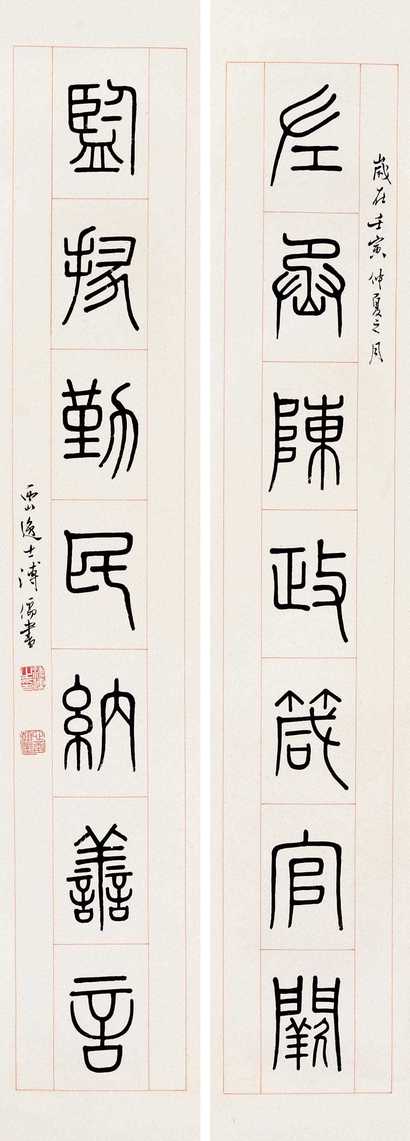 歲在壬寅仲夏之月
左陳政箴官闕
監掾勤民納善言
西山逸士溥儒書